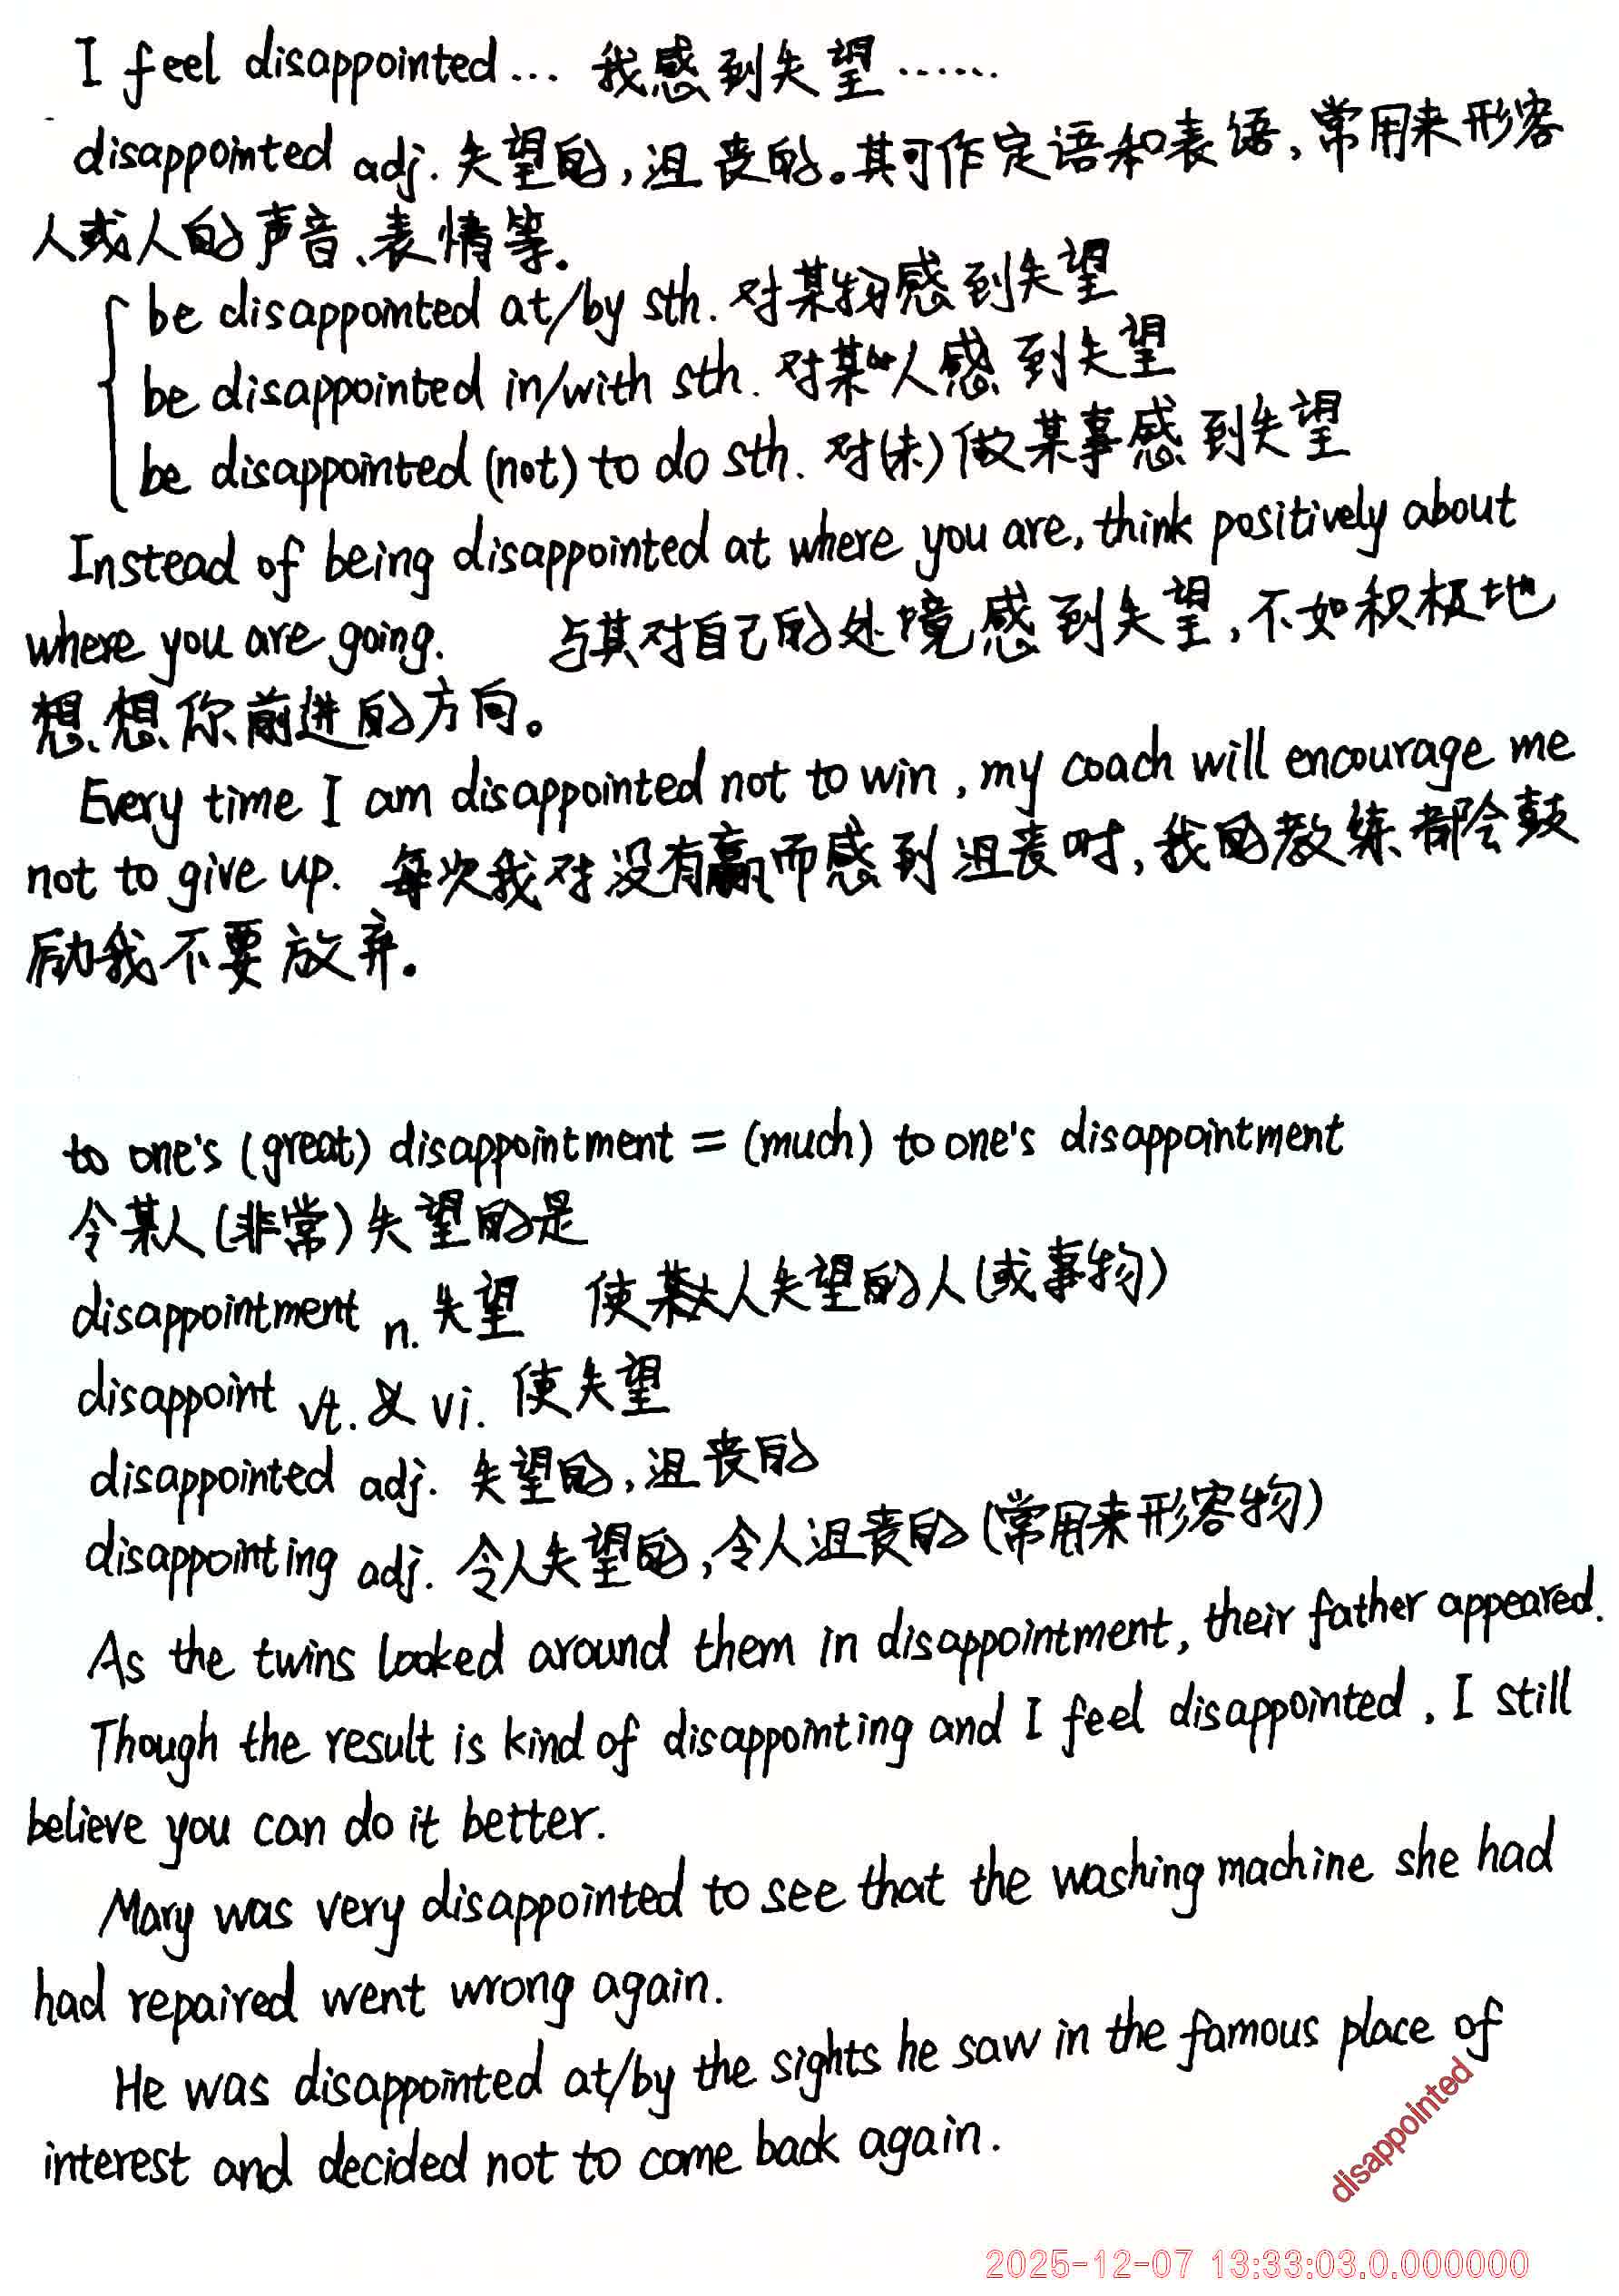 I feel disappointed... 我感到失望......
disappointed adj. 失望的,沮丧的。其可作定语和表语,常用来形容
人或人的声音、表情等.
be disappointed at/by sth. 对某物感到失望
be disappointed in/with sth. 对某人感到失望
be disappointed (not) to do sth. 对(未)做某事感到失望
Instead of being disappointed at where you are, think positively about
where you are going. 与其对自己的处境感到失望,不如积极地
想想你前进的方向。
Every time I am disappointed not to win, my coach will encourage me
not to give up. 每次我对没有赢而感到沮丧时,我的教练都会鼓
励我不要放弃.
to one's (great) disappointment = (much) to one's disappointment
令某人(非常)失望的是
disappointment n. 失望 使某人失望的人(或事物)
disappoint vt. & vi. 使失望
disappointed adj. 失望的,沮丧的
disappointing adj. 令人失望的,令人沮丧的(常用来形容物)
As the twins looked around them in disappointment, their father appeared.
Though the result is kind of disappointing and I feel disappointed, I still
believe you can do it better.
Mary was very disappointed to see that the washing machine she had
had repaired went wrong again.
He was disappointed at/by the sights he saw in the famous place of
interest and decided not to come back again.
disappointed
2025-12-07 13:33:03.0.000000